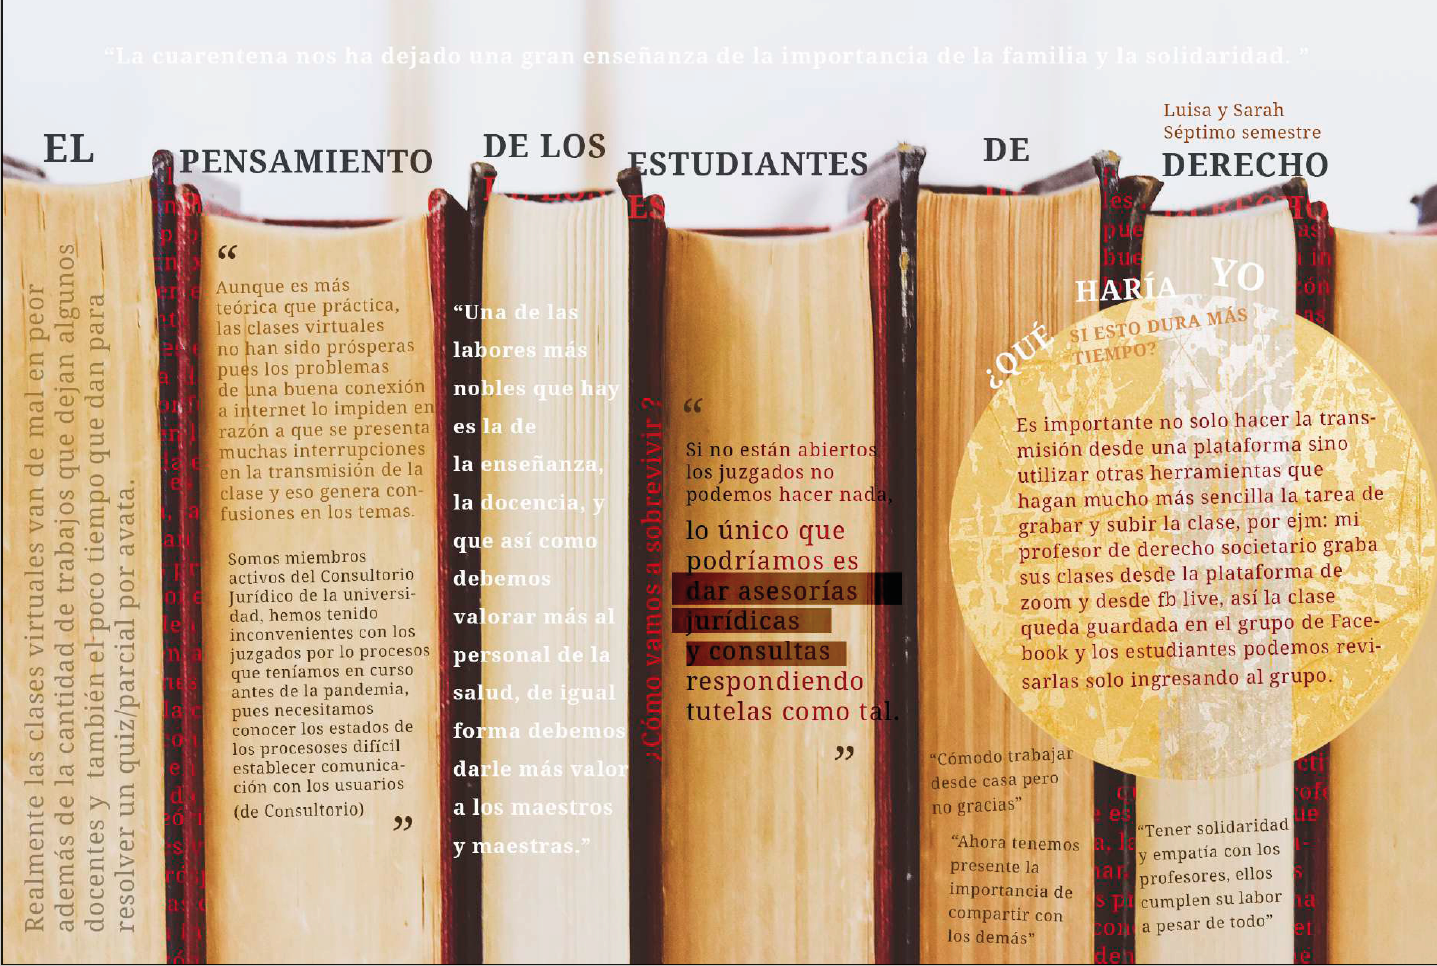 “La cuarentena nos ha dejado una gran enseñanza de la importancia de la familia y la solidaridad. ”
Luisa y Sarah
Séptimo semestre
EL PENSAMIENTO DE LOS ESTUDIANTES DE DERECHO
Realmente las clases virtuales van de mal en peor
además de la cantidad de trabajos que dejan algunos
docentes y también el poco tiempo que dan para
resolver un quiz/parcial por avata.
“
Aunque es más
teórica que práctica,
las clases virtuales
no han sido prósperas
pues los problemas
de una buena conexión
a internet lo impiden en
razón a que se presenta
muchas interrupciones
en la transmisión de la
clase y eso genera con-
fusiones en los temas.
Somos miembros
activos del Consultorio
Jurídico de la universi-
dad, hemos tenido
inconvenientes con los
juzgados por lo procesos
que teníamos en curso
antes de la pandemia,
pues necesitamos
conocer los estados de
los procesoses difícil
establecer comunica-
ción con los usuarios
(de Consultorio)
”
“Una de las
labores más
nobles que hay
es la de
la enseñanza,
la docencia, y
que así como
debemos
valorar más al
personal de la
salud, de igual
forma debemos
darle más valor
a los maestros
y maestras.”
¿Cómo vamos a sobrevivir ?
“
Si no están abiertos
los juzgados no
podemos hacer nada,
lo único que
podríamos es
dar asesorías
jurídicas
y consultas
respondiendo
tutelas como tal.
”
¿QUÉ HARÍA YO
SI ESTO DURA MÁS
TIEMPO?
Es importante no solo hacer la trans-
misión desde una plataforma sino
utilizar otras herramientas que
hagan mucho más sencilla la tarea de
grabar y subir la clase, por ejm: mi
profesor de derecho societario graba
sus clases desde la plataforma de
zoom y desde fb live, así la clase
queda guardada en el grupo de Face-
book y los estudiantes podemos revi-
sarlas solo ingresando al grupo.
“Cómodo trabajar
desde casa pero
no gracias”
“Ahora tenemos
presente la
importancia de
compartir con
los demás”
“Tener solidaridad
y empatía con los
profesores, ellos
cumplen su labor
a pesar de todo”